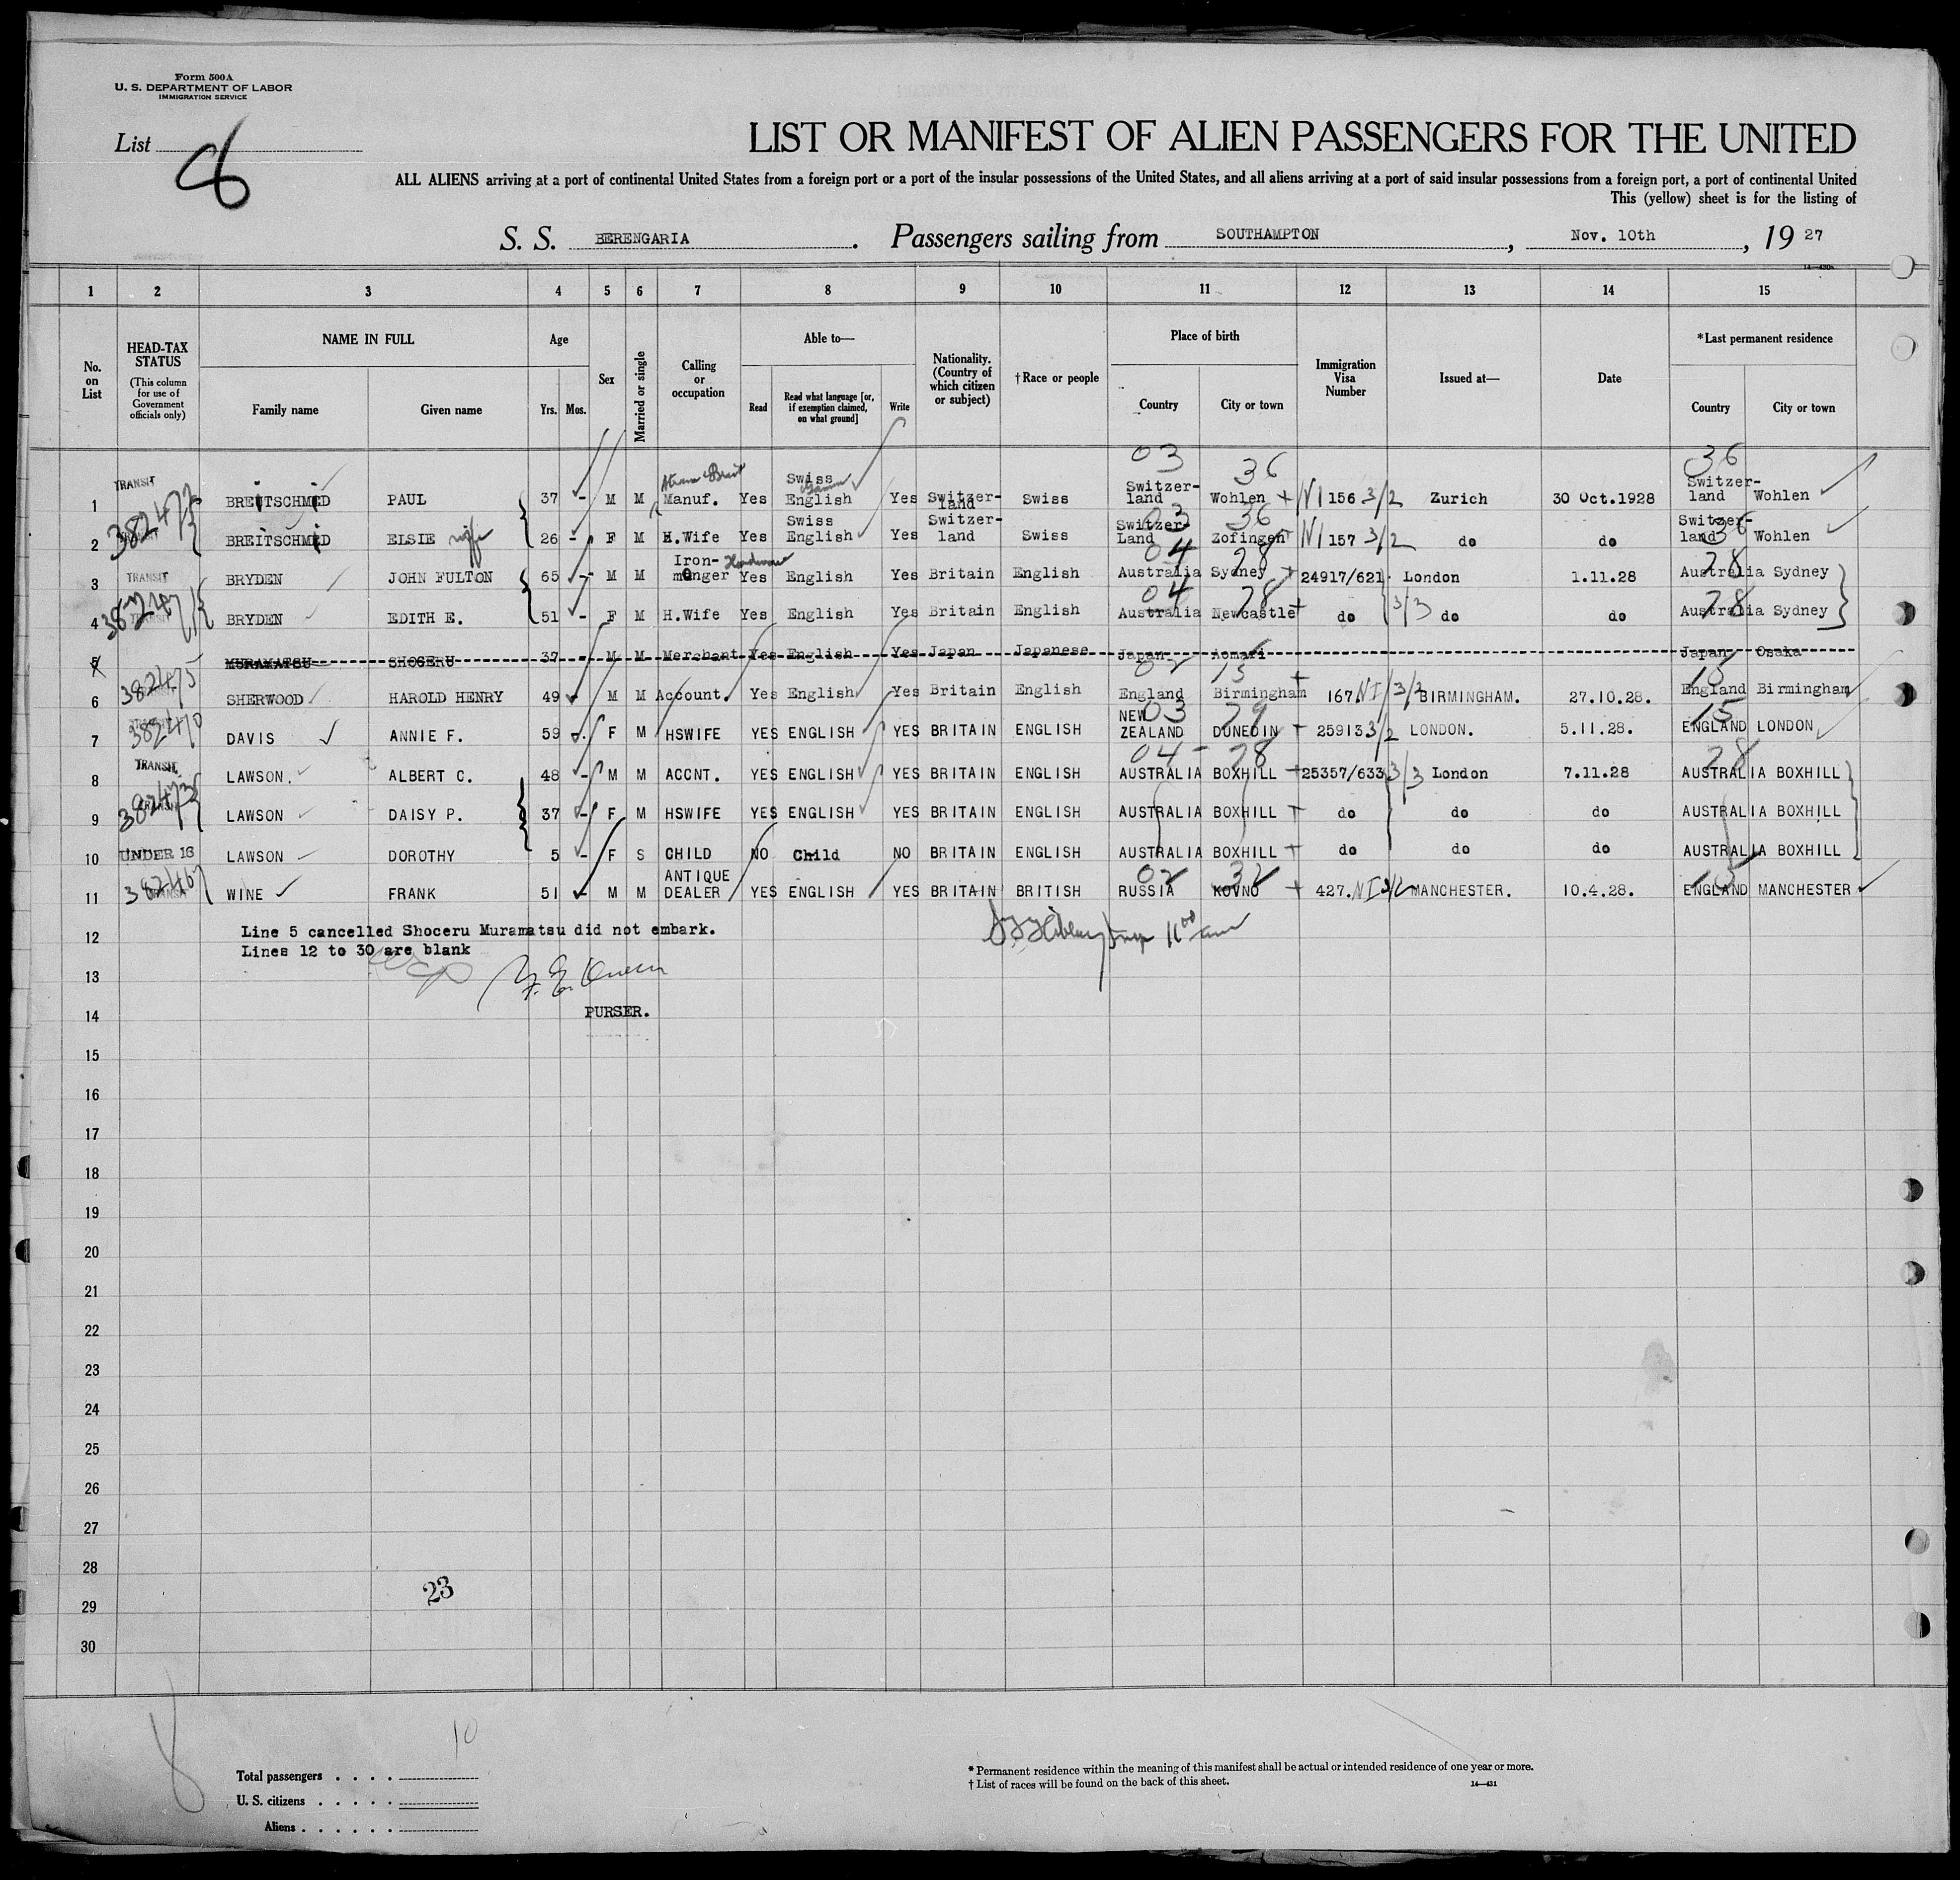 Form 500A
U. S. DEPARTMENT OF LABOR
IMMIGRATION SERVICE
List 8
LIST OR MANIFEST OF ALIEN PASSENGERS FOR THE UNITED
ALL ALIENS arriving at a port of continental United States from a foreign port or a port of the insular possessions of the United States, and all aliens arriving at a port of said insular possessions from a foreign port, a port of continental United
This (yellow) sheet is for the listing of
S. S. BERENGARIA. Passengers sailing from SOUTHAMPTON, Nov. 10th, 19 27
1 2 3 4 5 6 7 8 9 10 11 12 13 14 15
No. on List
HEAD-TAX STATUS (This column for use of Government officials only)
NAME IN FULL
Family name Given name
Age
Yrs. Mos.
Sex
Married or single
Calling or occupation
Able to—
Read Read what language [or, if exemption claimed, on what ground] Write
Nationality. (Country of which citizen or subject)
† Race or people
Place of birth
Country City or town
Immigration Visa Number
Issued at—
Date
*Last permanent residence
Country City or town
03 36 36
1 TRANSIT BREITSCHMID PAUL 37 - M M Manuf. Yes Swiss English Yes Switzer-land Swiss Switzer-land Wohlen NI 156 3/2 Zurich 30 Oct.1928 Switzer-land Wohlen
03 36 36
2 BREITSCHMID ELSIE wife 26 - F M H.Wife Yes Swiss English Yes Switzer-land Swiss Switzer-Land Zofingen NI 157 3/2 do do Switzer-land Wohlen
04 28 28
3 TRANSIT BRYDEN JOHN FULTON 65 - M M Iron-monger Hardware Yes English Yes Britain English Australia Sydney 24917/621 London 1.11.28 Australia Sydney
04 28 28
4 TRANSIT BRYDEN EDITH E. 51 - F M H.Wife Yes English Yes Britain English Australia Newcastle do 3/3 do do Australia Sydney
5 MURAMATSU SHOCERU 37 - M M Merchant Yes English Yes Japan Japanese Japan Aomari Japan Osaka
02 15 15
6 382475 SHERWOOD HAROLD HENRY 49 M M Account. Yes English Yes Britain English England Birmingham 167. NI 3/2 BIRMINGHAM. 27.10.28. England Birmingham
03 29 15
7 382470 DAVIS ANNIE F. 59 -. F M HSWIFE YES ENGLISH YES BRITAIN ENGLISH NEW ZEALAND DUNEDIN 25913 3/2 LONDON. 5.11.28. ENGLAND LONDON
04 - 28 28
8 TRANSIT LAWSON. ALBERT C. 48 - M M ACCNT. YES ENGLISH YES BRITAIN ENGLISH AUSTRALIA BOXHILL 25357/633 3/3 London 7.11.28 AUSTRALIA BOXHILL
9 LAWSON DAISY P. 37 - F M HSWIFE YES ENGLISH YES BRITAIN ENGLISH AUSTRALIA BOXHILL do do do AUSTRALIA BOXHILL
10 UNDER 16 LAWSON DOROTHY 5 - F S CHILD NO Child NO BRITAIN ENGLISH AUSTRALIA BOXHILL do do do AUSTRALIA BOXHILL
02 32 15
11 382467 WINE FRANK 51 M M ANTIQUE DEALER YES ENGLISH YES BRITAIN BRITISH RUSSIA KOVNO 427. NI 3/2 MANCHESTER. 10.4.28. ENGLAND MANCHESTER
12 Line 5 cancelled Shoceru Muramatsu did not embark.
Lines 12 to 30 are blank
13
14 PURSER.
15
16
17
18
19
20
21
22
23
24
25
26
27
28
23
29
30
8 10
Total passengers
U. S. citizens
Aliens
* Permanent residence within the meaning of this manifest shall be actual or intended residence of one year or more.
† List of races will be found on the back of this sheet. 14—431